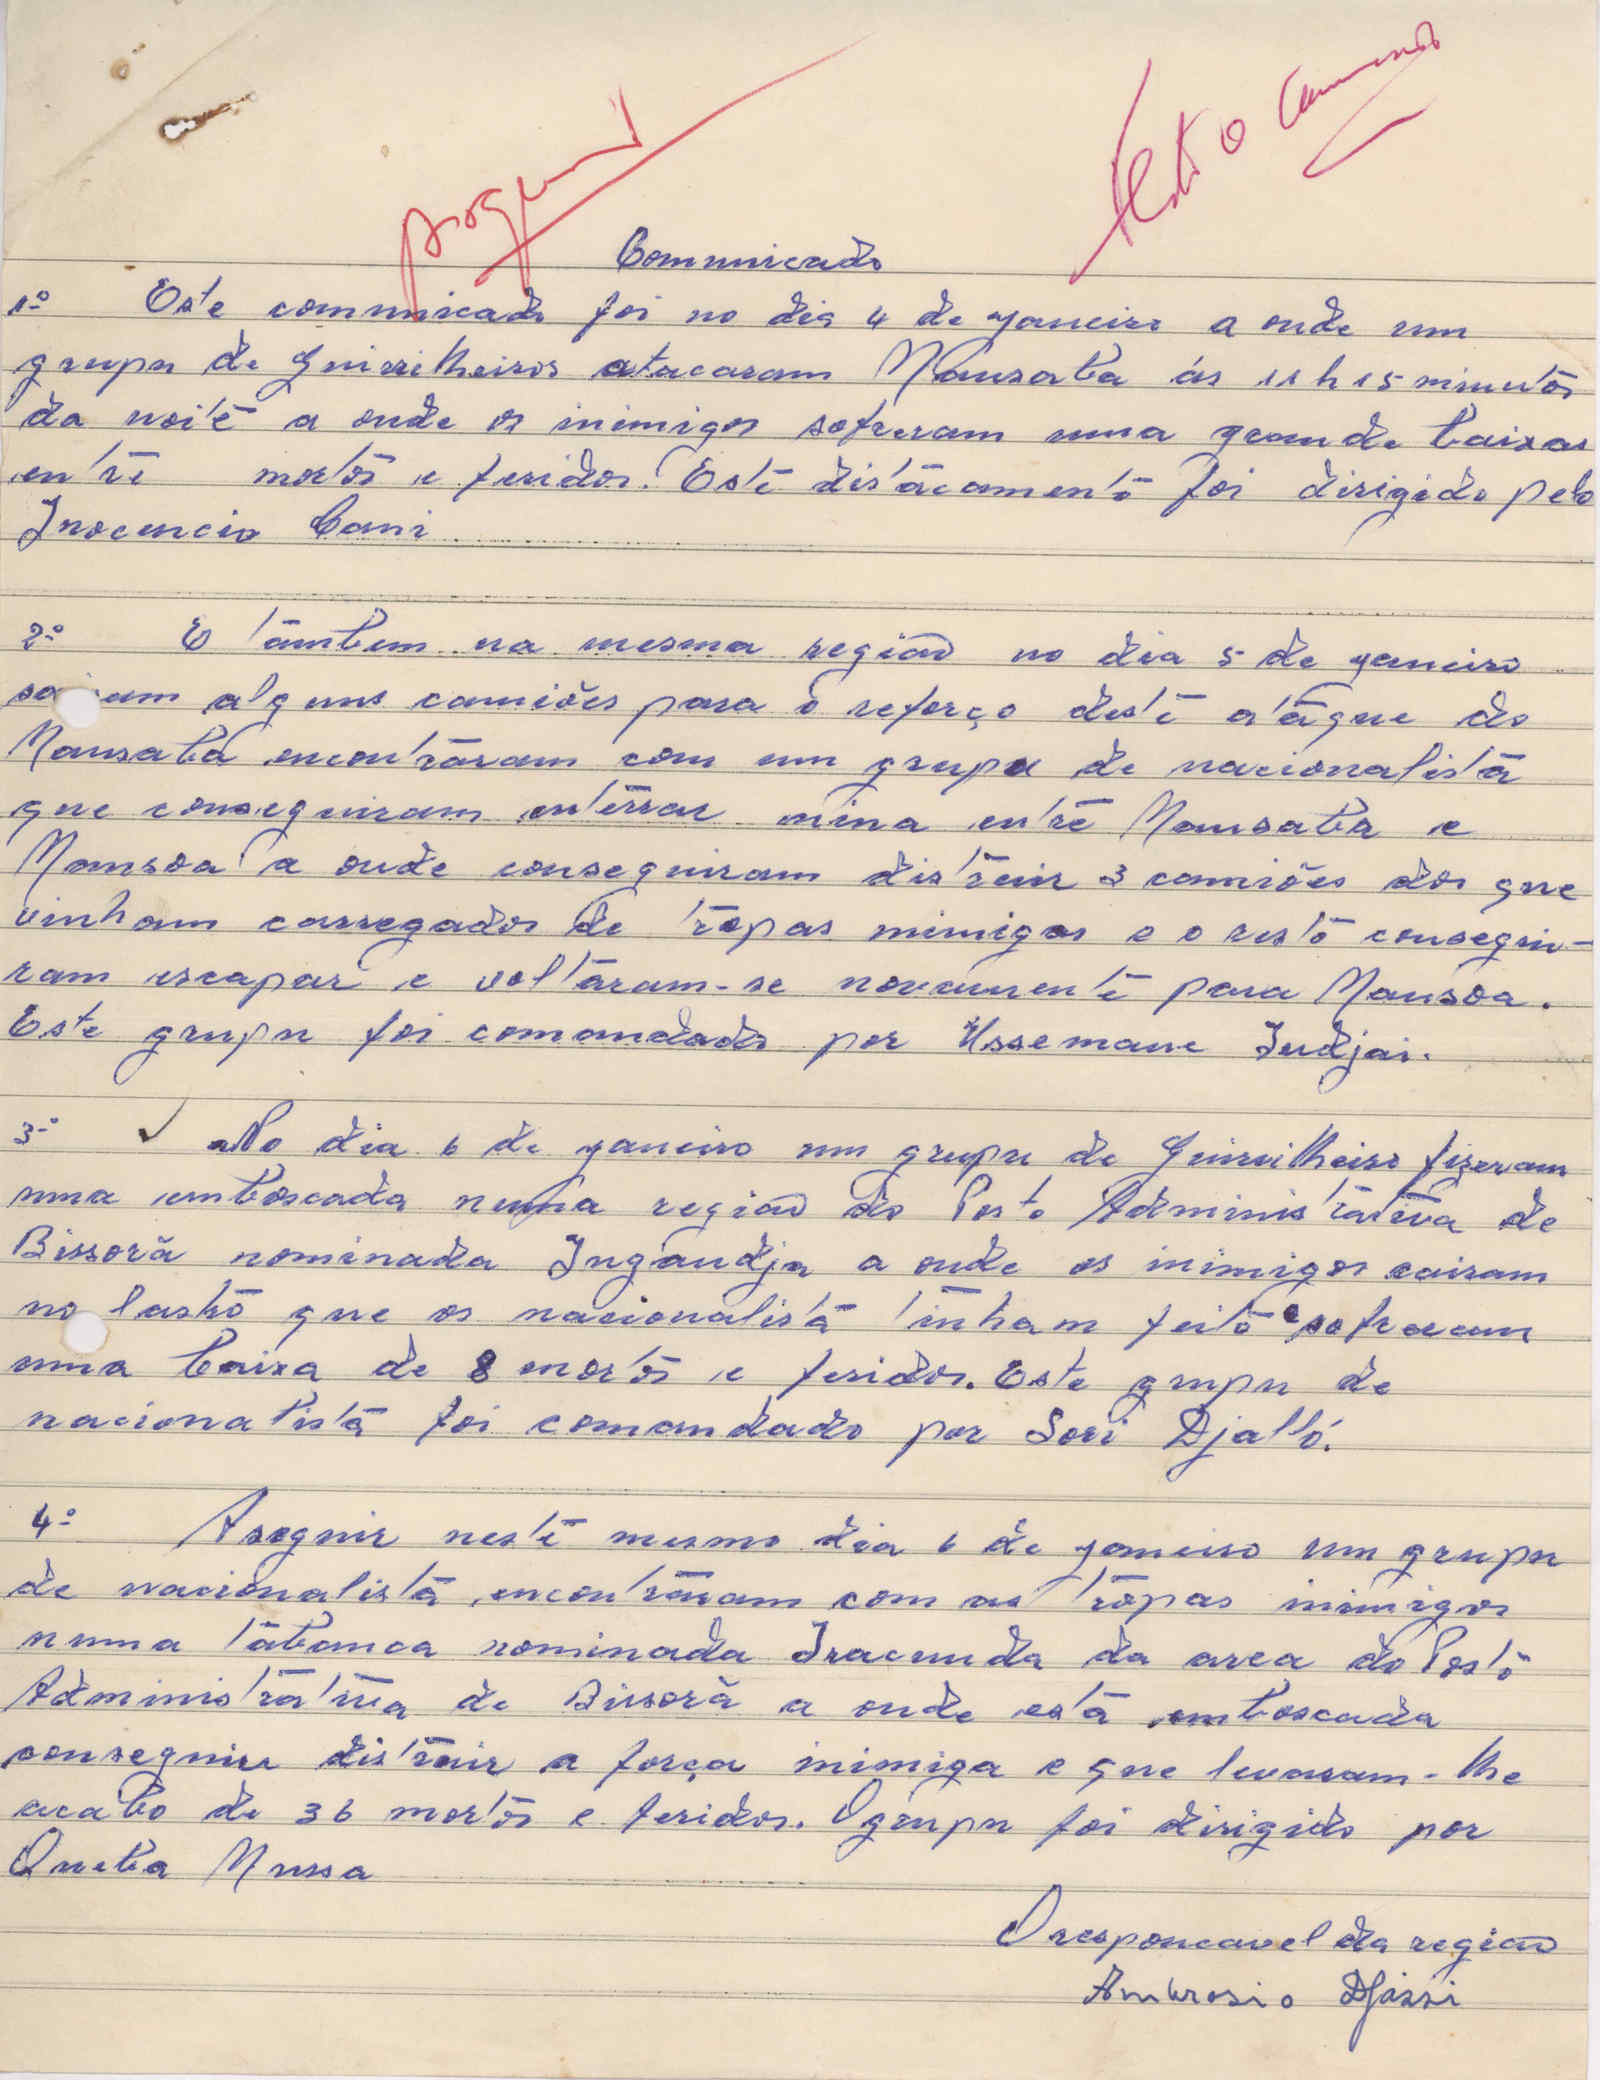 Comunicado
1º Este comunicado foi no dia 4 de janeiro a onde um
grupu de Guirrilheiros atacaram Mansaba ás 11 h 15 minutos
da noite a onde os inimigos sofreram uma grande baixas
entre mortos e feridos. Este distacamento foi dirigido pelo
Inocencio Cani
2º E tambem na mesma região no dia 5 de janeiro
alguns camiões para o reforço deste atáque do
Mansaba encontraram com um grupu de nacionalista
que conseguiram enterrar mina entre Mansaba e
Mansoa a onde conseguiram distruir 3 camiões dos que
vinham carregados de tropas inimigos e o resto consegui-
ram escapar e voltaram-se novamente para Mansoa.
Este grupu foi comandado por Ussemane Indjai.
3º No dia 6 de janeiro um grupu de Guirrilheiro fizeram
uma emboscada numa região do Posto Administrativa de
Bissorã nominada Ingandja a onde os inimigos cairam
no que os nacionalista tinham feito e sofreram
uma baixa de 8 mortos e feridos. Este grupu de
nacionalista foi comandado por Sori Djalló.
4º A seguir neste mesmo dia 6 de janeiro um grupu
de nacionalista encontraram com as tropas inimigos
numa tabanca nominada Iracunda da area do Posto
Administrativa de Bissorã a onde esta emboscada
conseguiu distruir a força inimiga e que levaram-lhe
acabo de 36 mortos e feridos. O grupu foi dirigido por
Queba Mussa
O responcavel da região
Ambrosio Djassi